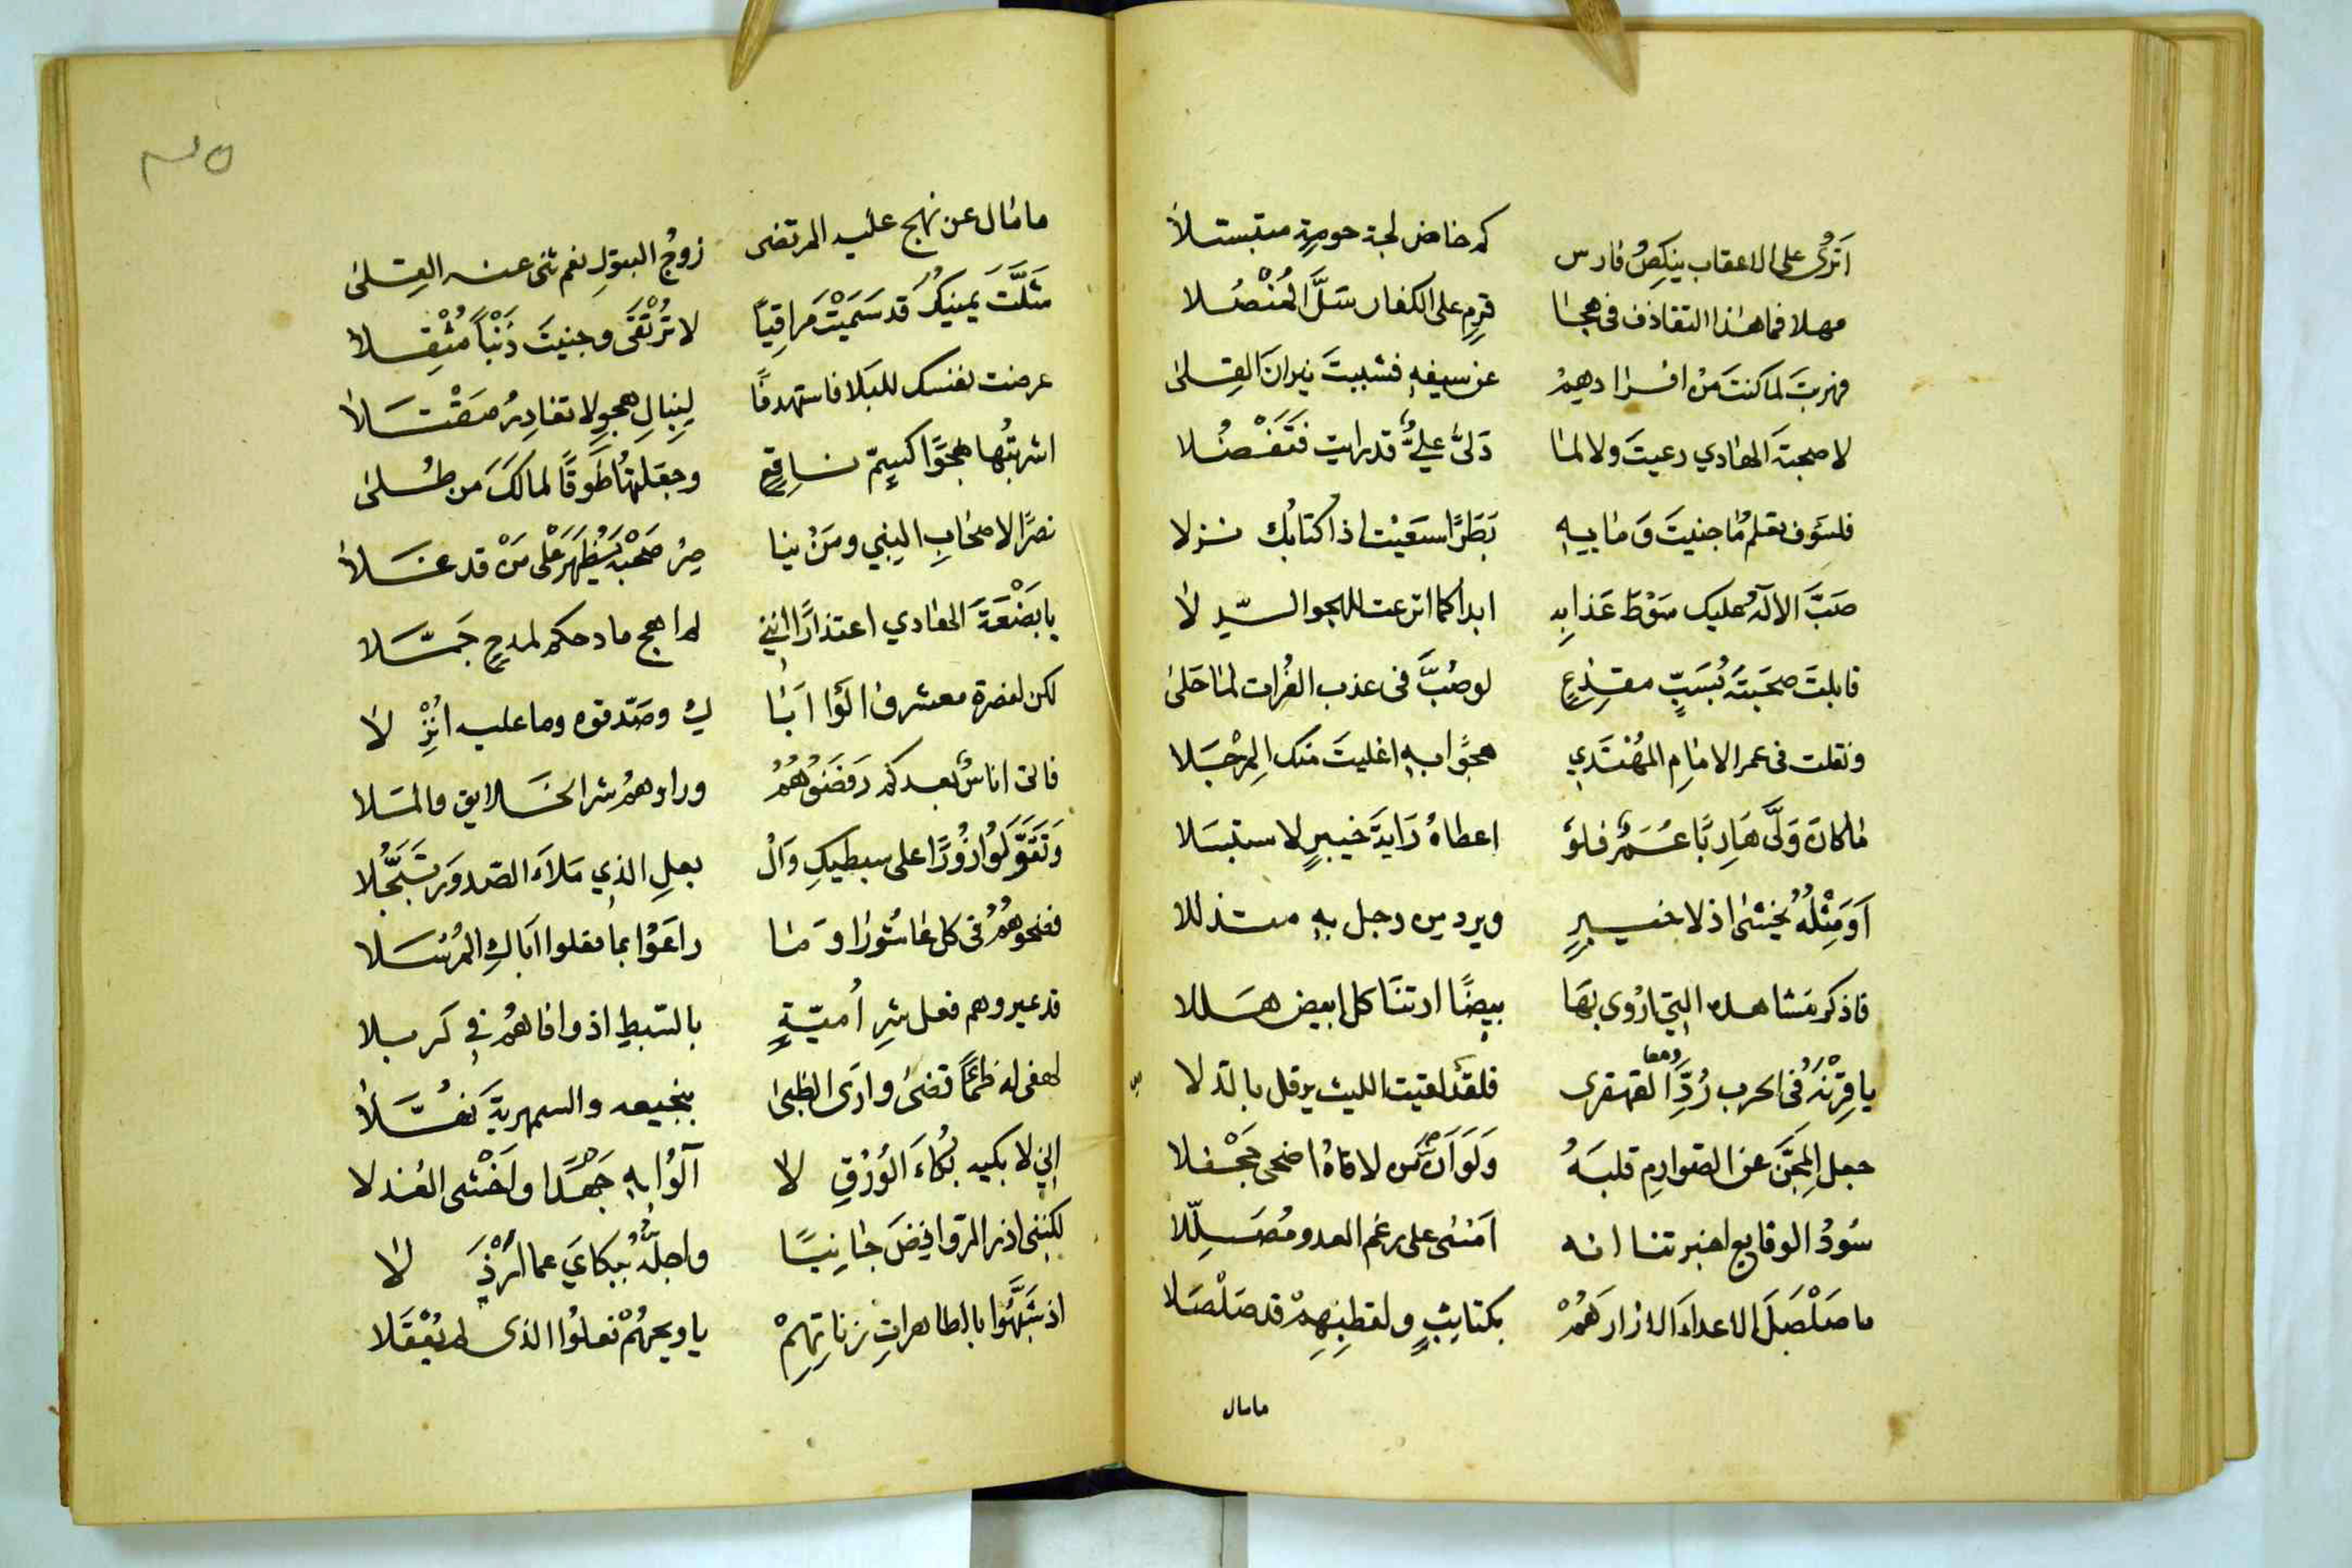 اَتَرُى على الاعقاب ينكِصُ فارس كم خاض لجة حومةٍ متبسلا
مهلا فما هذا التقاذف فى هجا قرمٍ على الكفار سَلَّ المُنْصُلا
فهربتَ لما كنتَ مِنْ افرادهِمْ عن سيفهِ فشببتَ نيرانَ القِلىٰ
لا صحبةَ الهادي رعيتَ ولا لما دَلىَّ عليٌّ قد رايت فَتَفْصُلا
فلسَوف تعلم ما جنيتَ وَما بيهِ بَطَرًا سعَيْتَ اذا كتابُك نزلا
صَبَّ الالهُ عليك سَوْطَ عَذابِه ابدا كما اترعت للهجو السّيد لا
قابلتَ صحبَتهَ بُسَبٍّ مقذِعٍ لو صُبَّ فى عذب الفُرات لما حَلىٰ
ونقلت فى عمر الامامِ المهُتَدِي هجوًا بهِ اغليتَ منك المِرْجَلا
ما كان وَلَّى هَارِبًا عُمَرٌ فلوَ اعطاهُ رَايةَ خيبرٍ لاستبسَلا
اَوَمِثْلُهُ يخشىٰ اذلا خيبرٍ ويرد من رجل بهِ متذللا
فاذكر مَشاهده التِي اروى بهَا بيضًا ارتنَا كل ابيض هَللا
يا قِرْنَهُ فى الحرب رُدَّ القهقرى فلقد لقيت الليث يرقل بالدلا
جعل المِجَنَّ عن الصوارِمِ قلبَهُ وَلَوَ اَنَّ مَن لاقاهُ اضحى جَحْفلا
سُودُ الوقايع اخبرتنا انه اَمْسٰى على رغم العدو مُصَلِّلا
ما صَلْصَلَ الاعداءَ الا زارَهُمْ بكتايبٍ ولقطِنهِمْ قد صَلْصَلا
مامال
ما مال عن نهج عليه المرتضى زوجُ البتولِ نعم ثنى عنه القِلىٰ
شَلَّتَ يمينكُ قد سَمَيْتَ مَراقِيًا لا تُرْتَقَى وجنيتَ ذَنْبًا مُثْقِلا
عرضت نفسك للبَلا فاستهدفًا لِنِبالِ هجوٍ لا تغادِرُ مَقْتَلا
اشربتُها هجوًا كسِمّ ناقعٍ وجعلتهُا طَوقًا لمالكَ من طُلىٰ
نصرًا لاصحابِ النبي ومَنْ ينا صِرُ صَحْبَه يَظهَرْ عَلى مَنْ قد علا
يا بَضْعَةَ الهادي اعتذارًا اننِي لم اهج مادحكم لمدحٍ جَمَّلا
لكن لنصرة معشر والَوُا اَبا كِ وصَدّقوه وما عليه اُنْزِ لا
فاتى اناسٌ بعدكم رَفَضَوُهُمُ وراوهُمُ شر الخَلايق والمَلا
وَتَقَوَّلُوُا زُورًا على سبطيكِ وَالْ بعلِ الذِي مَلاءَ الصّدورَ تَبَجُّلا
ففضحوهُمُ فى كل عاشُورا وَما راعَوُا بما فعلوا اَباكِ المُرْسَلا
قد عيروهم فعل شرِ اُميّةٍ بالسّبطِ اذ وافاهُمُ في كربلا
لهفى له ظمًا قضىٰ واَرَى الظبىٰ بنجيعه والسمهريةَ نَهَّلا
اِنِي لابكيه بُكاءَ الوُرْقِ لا آلُوا بهِ جَهْدًا واَخْشى العُذلا
لكنني اذر الروافِضَ جانِبًا واجلُّهُ ببكاي عما اَرْذَ لا
اذ شَبَّهُوا بالطاهراتِ زناتِهِمْ يا ويحهُمْ فعلوُا الذى لم يُعْقَلا